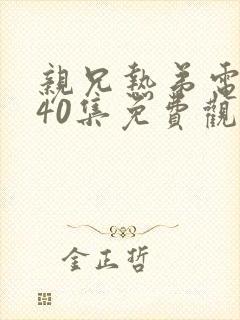 親兄熱弟電
40集免費觀
金正哲